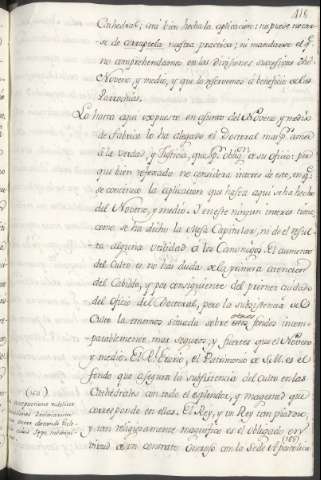 418
Cathedral; está bien hecha la aplicacion: no puede notar-
se de corruptela nuestra practica; ni mandarse el q.e
no comprehendamos en las divisiones sucesivas del
Noveno, y medio, y que lo reservemos à beneficio de las
Parroquias.
Lo hasta aqui expuesto en asunto del Noveno y medio
de Fabrica lo ha alegado el Doctoral mas p.r amor
à la verdad, y Justicia, que p.r oblig.n de su oficio: por
que bien reflexado no considera interés de este, en q.e
se continúe la aplicacion que hasta aqui se ha hecho
del Noveno, y medio. Ni en este ningun interes tiene,
como se ha dicho la Mesa Capitular, ni de el resul-
ta alguna utilidad à los Canonigos. El aumento
del Culto es, no hai duda, de la primera atencion
del Cabildo, y por consiguiente del primer cuidado
del oficio del Doctoral, pero la subsistencia del
Culto la tenemos situada sobre otros fondos incom-
parablemente mas seguros, y fuertes que el Noveno
y medio. El Erario, el Patrimonio de S.M. es el
fondo que asegura la subsistencia del Culto en las
Cathedrales con todo el esplendor, y magestad que
corresponde en ellas. El Rey, y un Rey tan piadoso,
y tan religiosamente magnifico es el obligado en
virtud de un contrato oneroso con la Sede Apostolica